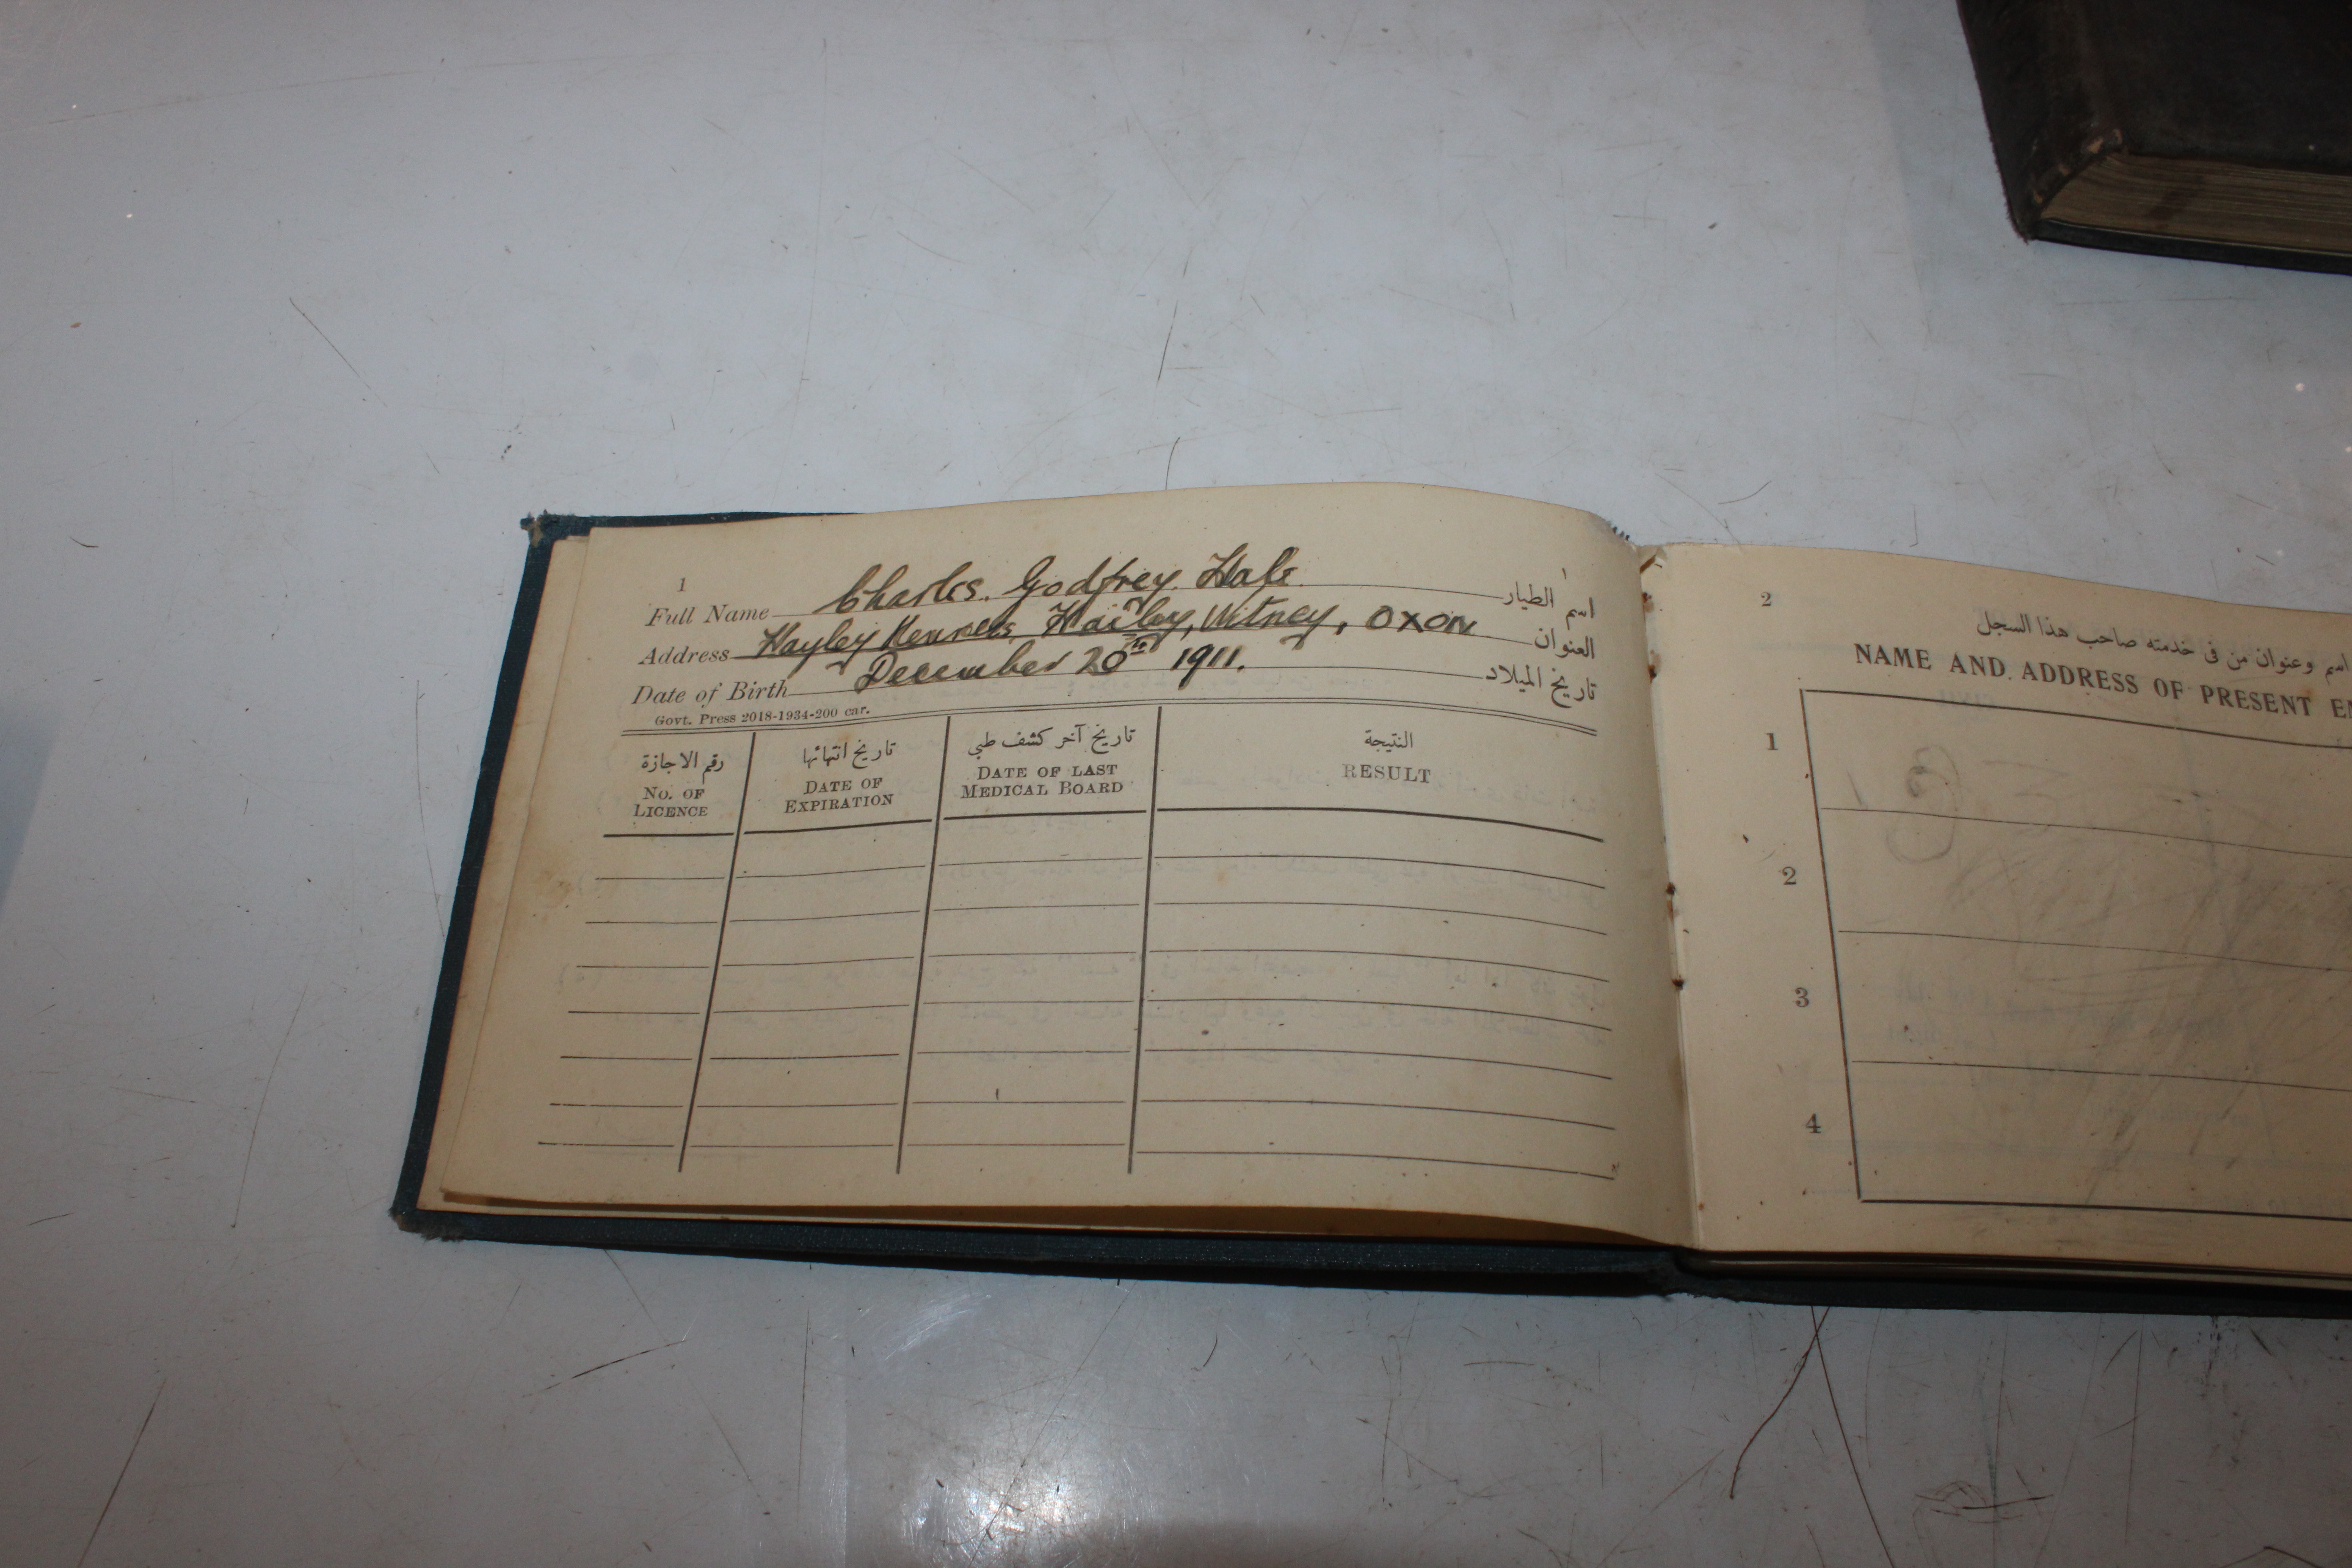 1
Full Name Charles. Godfrey. Hale. اسم الطيار
Address Hayley Kennels, Hailey, Witney, OXON العنوان
Date of Birth December 20th 1911. تاريخ الميلاد
Govt. Press 2018-1934-200 car.
رقم الاجازة
No. OF LICENCE
تاريخ انتهائها
DATE OF EXPIRATION
تاريخ آخر كشف طبي
DATE OF LAST MEDICAL BOARD
النتيجة
RESULT
2
اسم وعنوان من فى خدمته صاحب هذا السجل
NAME AND ADDRESS OF PRESENT
1
2
3
4